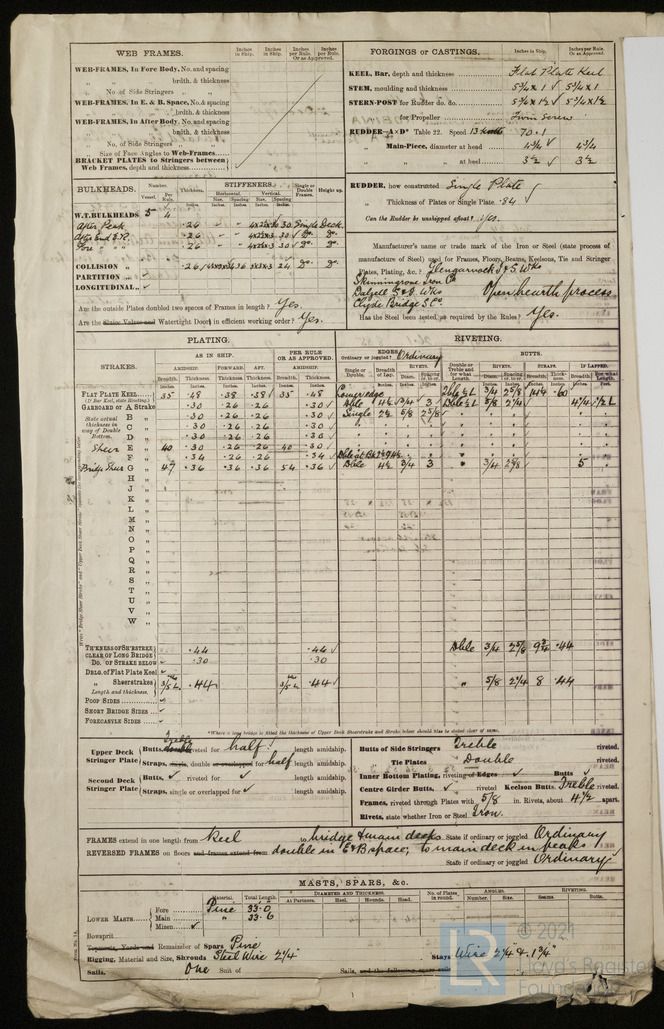 WEB FRAMES.
Inches in Ship. Inches in Ship. Inches per Rule. Or as Approved. Inches per Rule.
WEB-FRAMES, In Fore Body, No. and spacing
" " brdth. & thickness
" No. of Side Stringers "
WEB-FRAMES, In E. & B. Space, No. & spacing
" " brdth. & thickness
WEB-FRAMES, In After Body, No. and spacing
" " brdth. & thickness
" No. of Side Stringers "
" Size of Face Angles to Web-Frames
BRACKET PLATES to Stringers between
Web Frames, depth and thickness
FORGINGS or CASTINGS. Inches in Ship. Inches per Rule. Or as Approved.
KEEL, Bar, depth and thickness Flat Plate Keel
STEM, moulding and thickness 5¾ x 1 ✓ 5¾ x 1
STERN-POST for Rudder do. do. 5¾ x 1½ ✓ 5¾ x 1½
" for Propeller Twin Screw
RUDDER—A×D* Table 22. Speed 13 knots 70.1
" Main-Piece, diameter at head 4¾ ✓ 4¾
" " at heel 3½ ✓ 3½
BULKHEADS. Number. Thickness. STIFFENERS. Single or Double Frames. Height up.
Vessel. Per Rule. Horizontal. Vertical.
Size. Spacing Size. Spacing
W.T.BULKHEADS 5 4
After Peak .26 " " 30 Single Deck.
After End E.R .26 " " 30 do. do.
Fore " " .26 " " 30 do. do.
COLLISION " .26 36 24 do. do.
PARTITION "
LONGITUDINAL "
Are the outside Plates doubled two spaces of Frames in length? Yes.
Are the Sluice Valves and Watertight Doors in efficient working order? Yes.
RUDDER, how constructed Single Plate
" Thickness of Plates or Single Plate .84
Can the Rudder be unshipped afloat? Yes.
Manufacturer's name or trade mark of the Iron or Steel (state process of
manufacture of Steel) used for Frames, Floors, Beams, Keelsons, Tie and Stringer
Plates, Plating, &c.? Glengarnock I & S. Wks
Skinningrove Iron Co
Dalzell S & I. Wks Open hearth process
Clyde Bridge S. Co.
Has the Steel been tested, as required by the Rules? Yes.
PLATING. RIVETING.
STRAKES. AS IN SHIP. PER RULE OR AS APPROVED. EDGES. Ordinary or joggled? Ordinary BUTTS.
AMIDSHIP. FORWARD. AFT. AMIDSHIP. RIVETS. RIVETS. STRAPS. IF LAPPED.
FLAT PLATE KEEL 35 .48 .38 .38 35 .48 ¾ 2⅝ .60
GARBOARD or A Strake .30 .26 .26 .30 Dble 4½ ¾ 3 Dble ½ L ⅝ 2¼ 4¼ ½ L
State actual thickness in way of Double Bottom. B " .30 .26 .26 .30 Single 2½ ⅝ 2⅝
C " .30 .26 .26 .30
D " .30 .26 .26 .30
Sheer E " 40 .30 .26 .26 40 .30
F " .34 .26 .26 .34
Bridge Sheer G " 47 .36 .36 .36 54 .36 Dble 4½ ¾ 3 " ¾ 2⅝ 5
H "
J "
K "
L "
M "
N "
O "
P "
Q "
R "
S "
T "
U "
V "
W "
THICKNESS OF SHERSTRKE CLEAR OF LONG BRIDGE .44 .44 Dble ¾ 2⅝ 9¾ .44
DO. OF STRAKE BELOW .30 .30
DBLG. of Flat Plate Keel
" Sheerstrakes 3/5 L .44 3/5 L .44 " ⅝ 2¼ 8 .44
Length and thickness.
POOP SIDES
SHORT BRIDGE SIDES
FORECASTLE SIDES
*Where a long bridge is fitted the thickness of Upper Deck Sheerstrake and Strake below should also be stated clear of same.
Upper Deck Stringer Plate Butts, Treble double riveted for half length amidship.
Straps, single, double or overlapped for half length amidship.
Second Deck Stringer Plate Butts, ✓ riveted for ✓ length amidship.
Straps, single or overlapped for ✓ length amidship.
Butts of Side Stringers Treble riveted.
" Tie Plates Double riveted.
Inner Bottom Plating, riveting of Edges ✓ Butts ✓
Centre Girder Butts, ✓ riveted Keelson Butts, Treble riveted.
Frames, riveted through Plates with 5/8 in. Rivets, about 4½ apart.
Rivets, state whether Iron or Steel Iron.
FRAMES extend in one length from Keel to bridge & main decks State if ordinary or joggled Ordinary
REVERSED FRAMES on floors and frames extend from double in E&B space; to main deck in peaks
State if ordinary or joggled Ordinary
MASTS, SPARS, &c.
Material. Total Length. DIAMETER AND THICKNESS. No. of Plates in round. ANGLES. RIVETING.
At Partners. Heel. Hounds. Head. Number. Size. Seams. Butts.
LOWER MASTS Fore Pine 33.0
Main " 33.6
Mizen ✓
Bowsprit
Topmasts, Yards and Remainder of Spars Pine
Rigging, Material and Size, Shrouds Steel Wire 2¼" Stays Wire 2¼" & 1¾"
Sails. One Suit of Sails, and the following spare sails
© 2021
LR
Lloyd's Register
Foundation